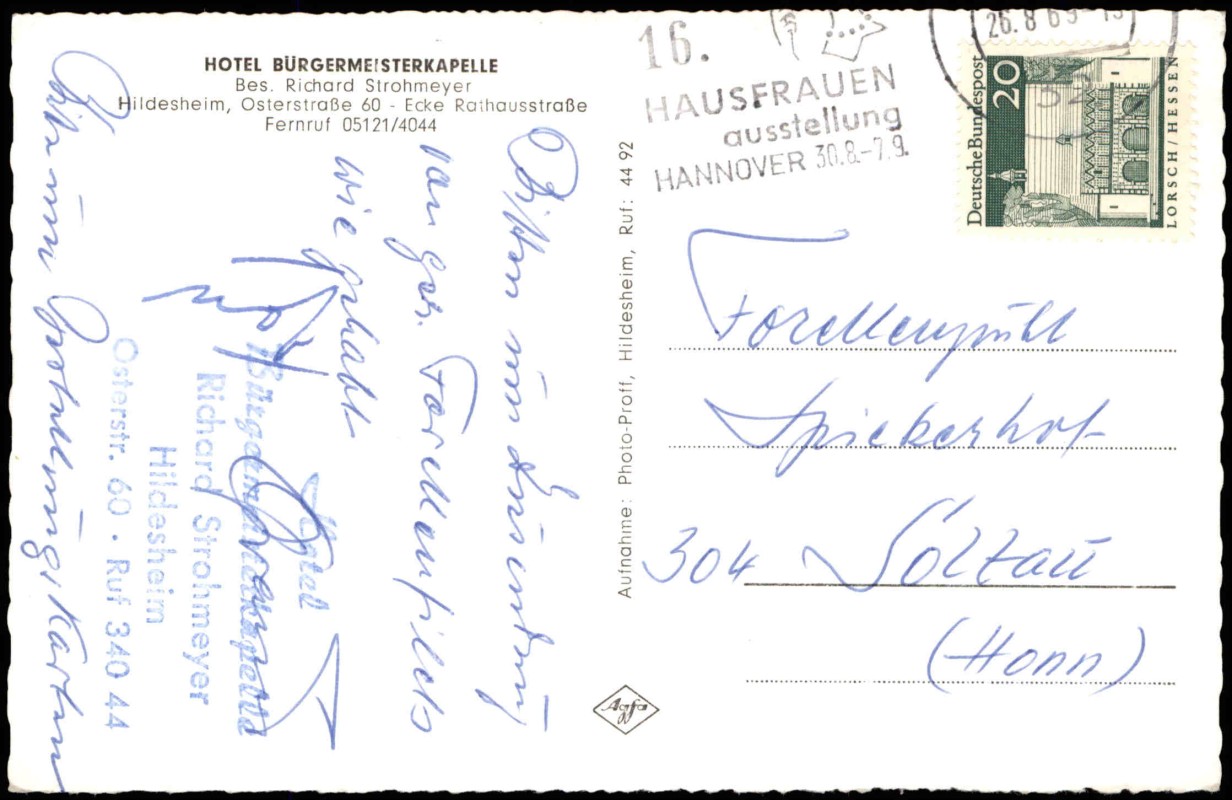 HOTEL BÜRGERMEISTERKAPELLE
Bes. Richard Strohmeyer
Hildesheim, Osterstraße 60 - Ecke Rathausstraße
Fernruf 05121/4044
Bitten um
von gr. Forellenfilets
wie gehabt
Hotel
Bürgermeisterkapelle
Richard Strohmeyer
Hildesheim
Osterstr. 60 · Ruf 340 44
Bitte um Bestellungskarten
Aufnahme: Photo-Proff, Hildesheim, Ruf: 44 92
Agfa
16.
HAUSFRAUEN
ausstellung
HANNOVER 30.8.-7.9.
26.8.69-
Deutsche Bundespost
20
LORSCH/HESSEN
Spiekerhof
304 Soltau
(Hann)